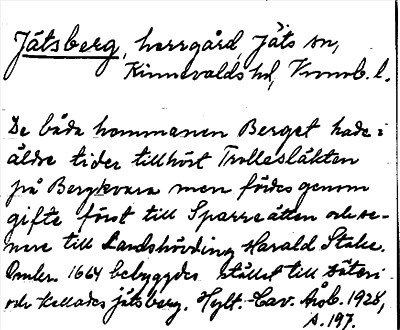 Jätsberg, herrgård, Jäts sn,
Kinnevalds hd, Kronob. l.
De båda hemmanen Berget hade i
äldre tider tillhört Trollesläkten
på Bergkvara men fördes genom
gifte först till Sparreätten och se-
nere till Landshövding Harald Stake.
Omkr. 1664 bebyggdes stället till säteri
och kallades Jätsberg. Hylt.-Cav. 1928,
s. 197.